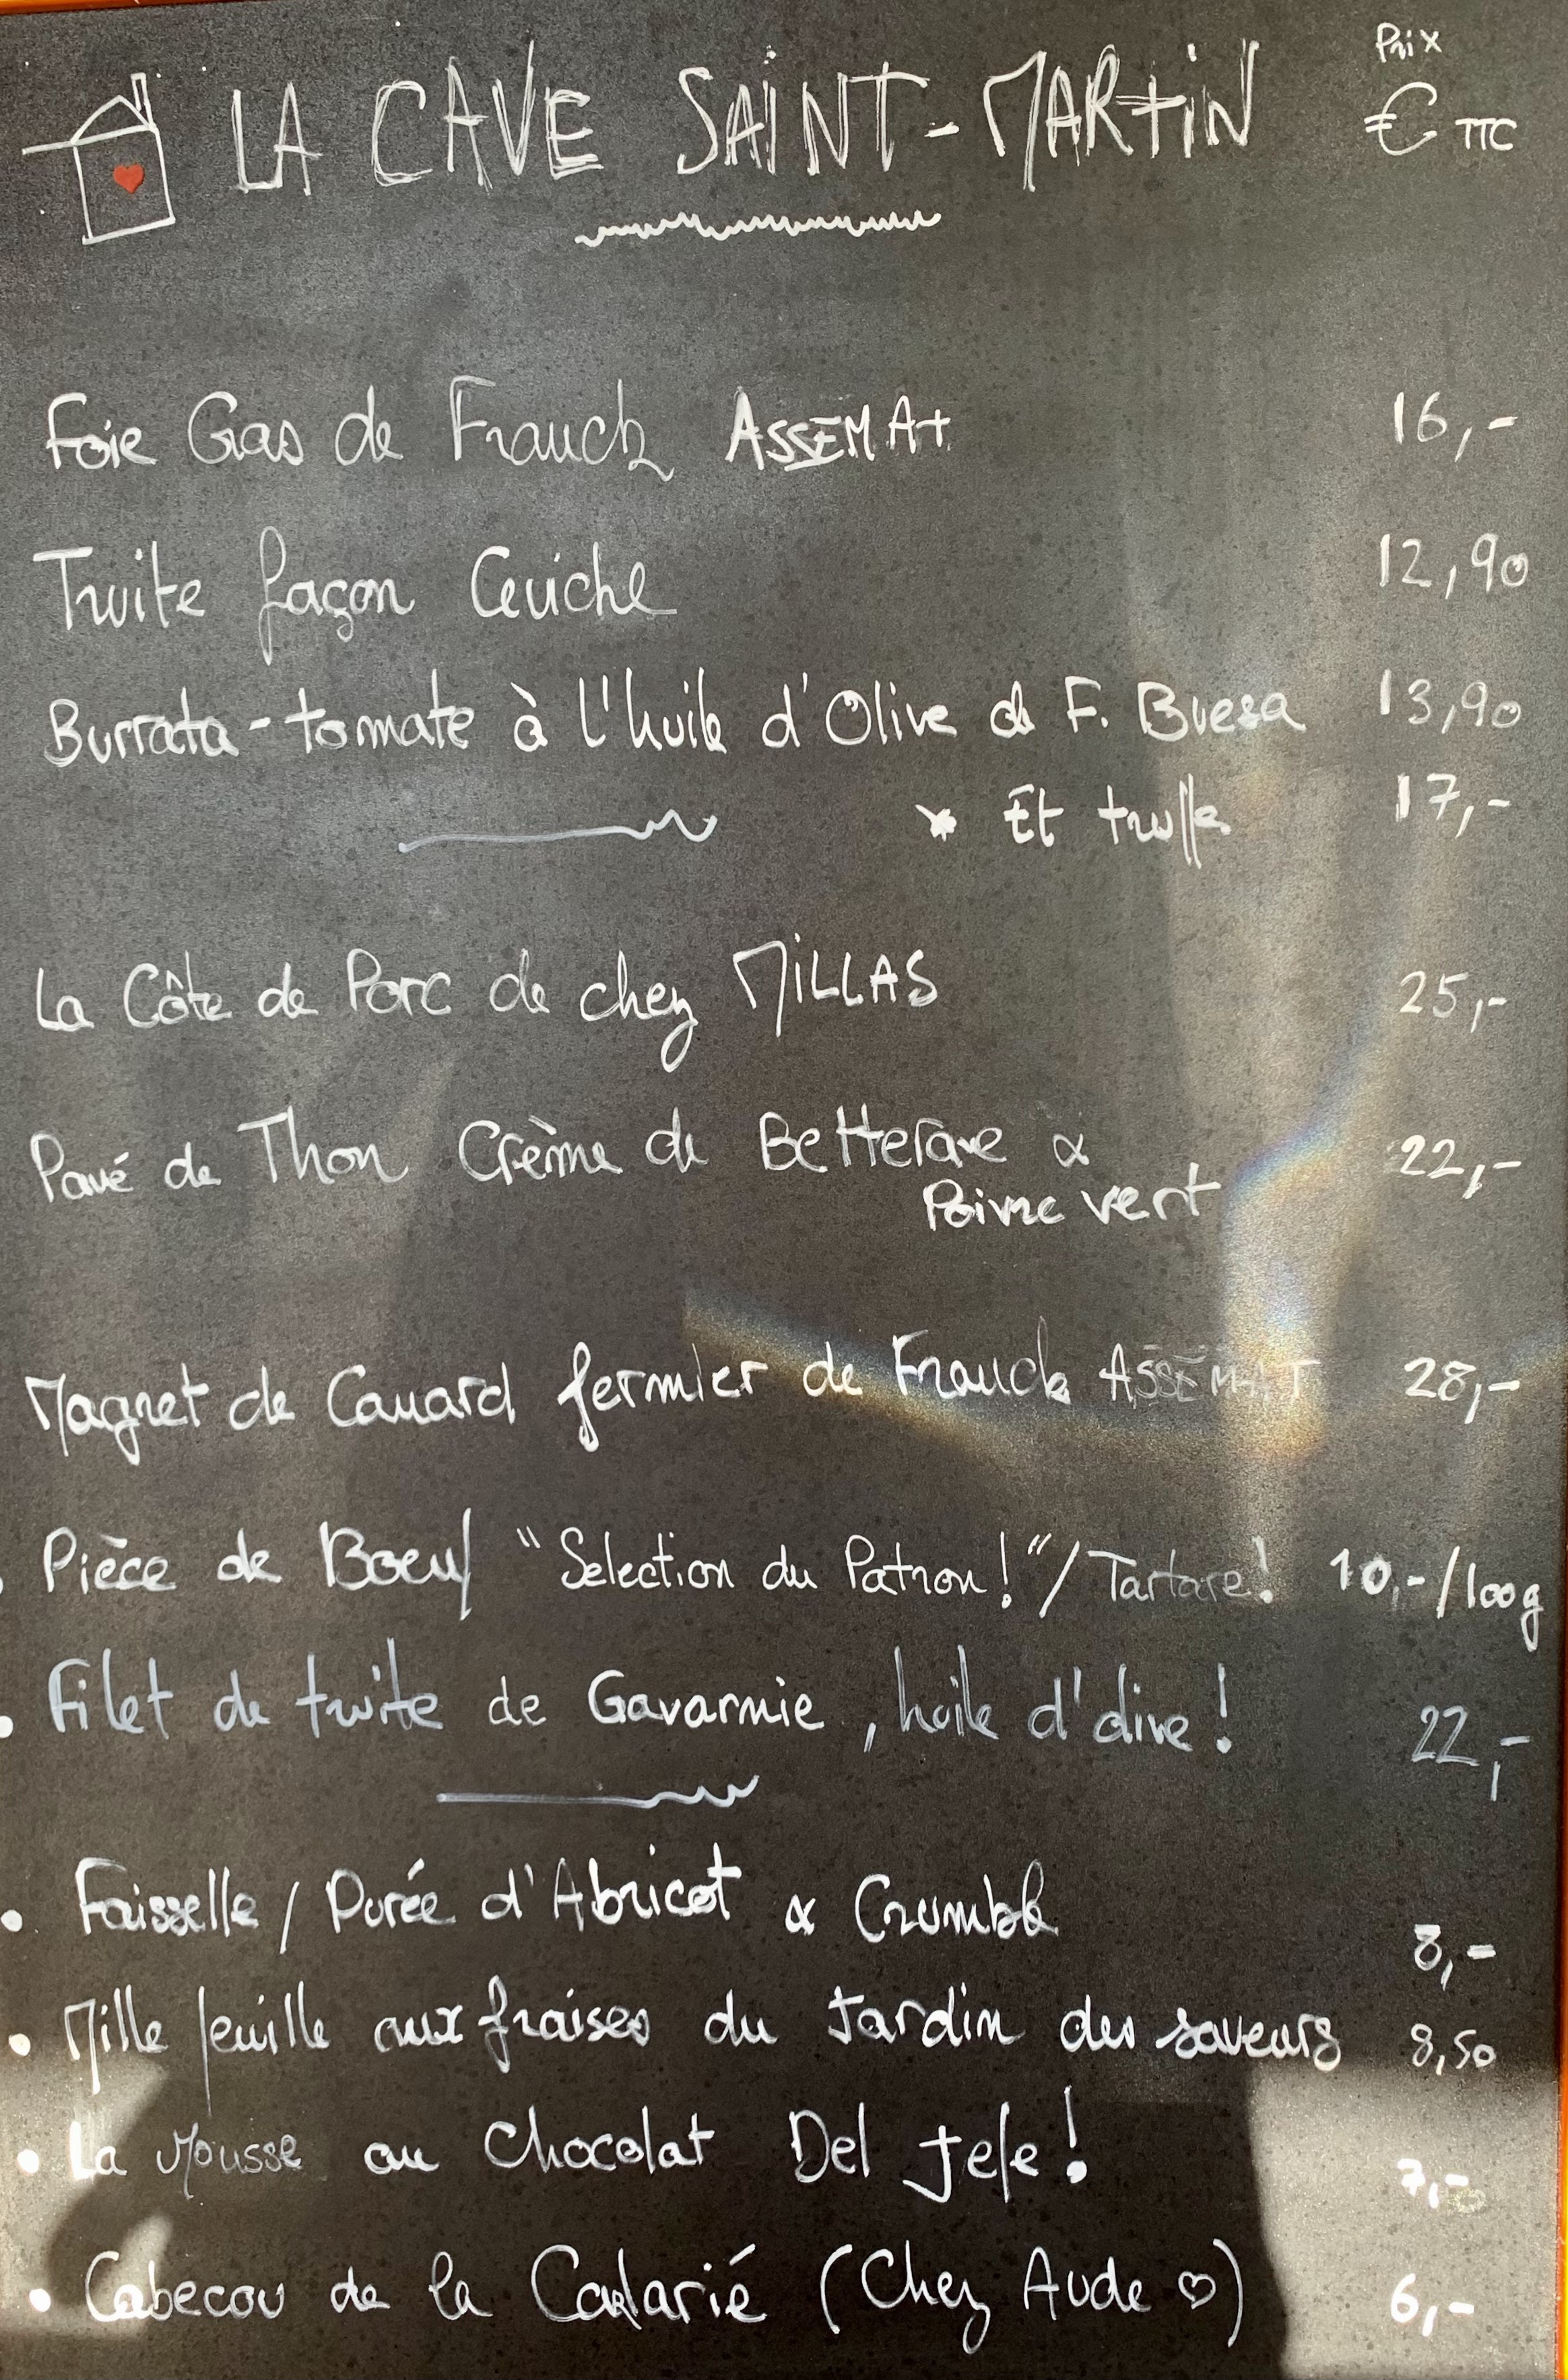 Prix
LA CAVE SAINT-MARTIN € TTC
Foie Gras de Franck ASSEMAT 16,-
Truite façon Ceviche 12,90
Burrata-tomate à l'huile d'Olive de F. Buesa 13,90
* Et truffe 17,-
La Côte de Porc de chez MILLAS 25,-
Pavé de Thon Crème de Betterave & 22,-
Poivre vert
Magret de Canard fermier de Franck ASSEMAT 28,-
Pièce de Boeuf "Selection du Patron!"/Tartare! 10,-/100g
• Filet de truite de Gavarnie, huile d'olive! 22,-
• Faisselle / Purée d'Abricot & Crumble 8,-
• Mille feuille aux fraises du Jardin des saveurs 8,50
• La Mousse au Chocolat Del Jefe! 7,-
• Cabecou de la (Chez Aude ♡) 6,-